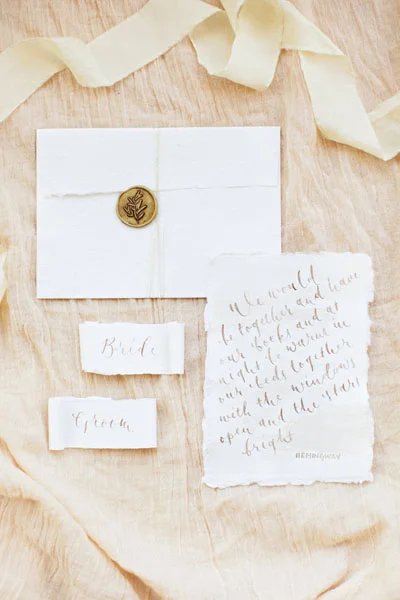 Bride
Groom
We would
be together and have
our books and at
night be warm in
our beds together
with the windows
open and the stars
bright
HEMINGWAY